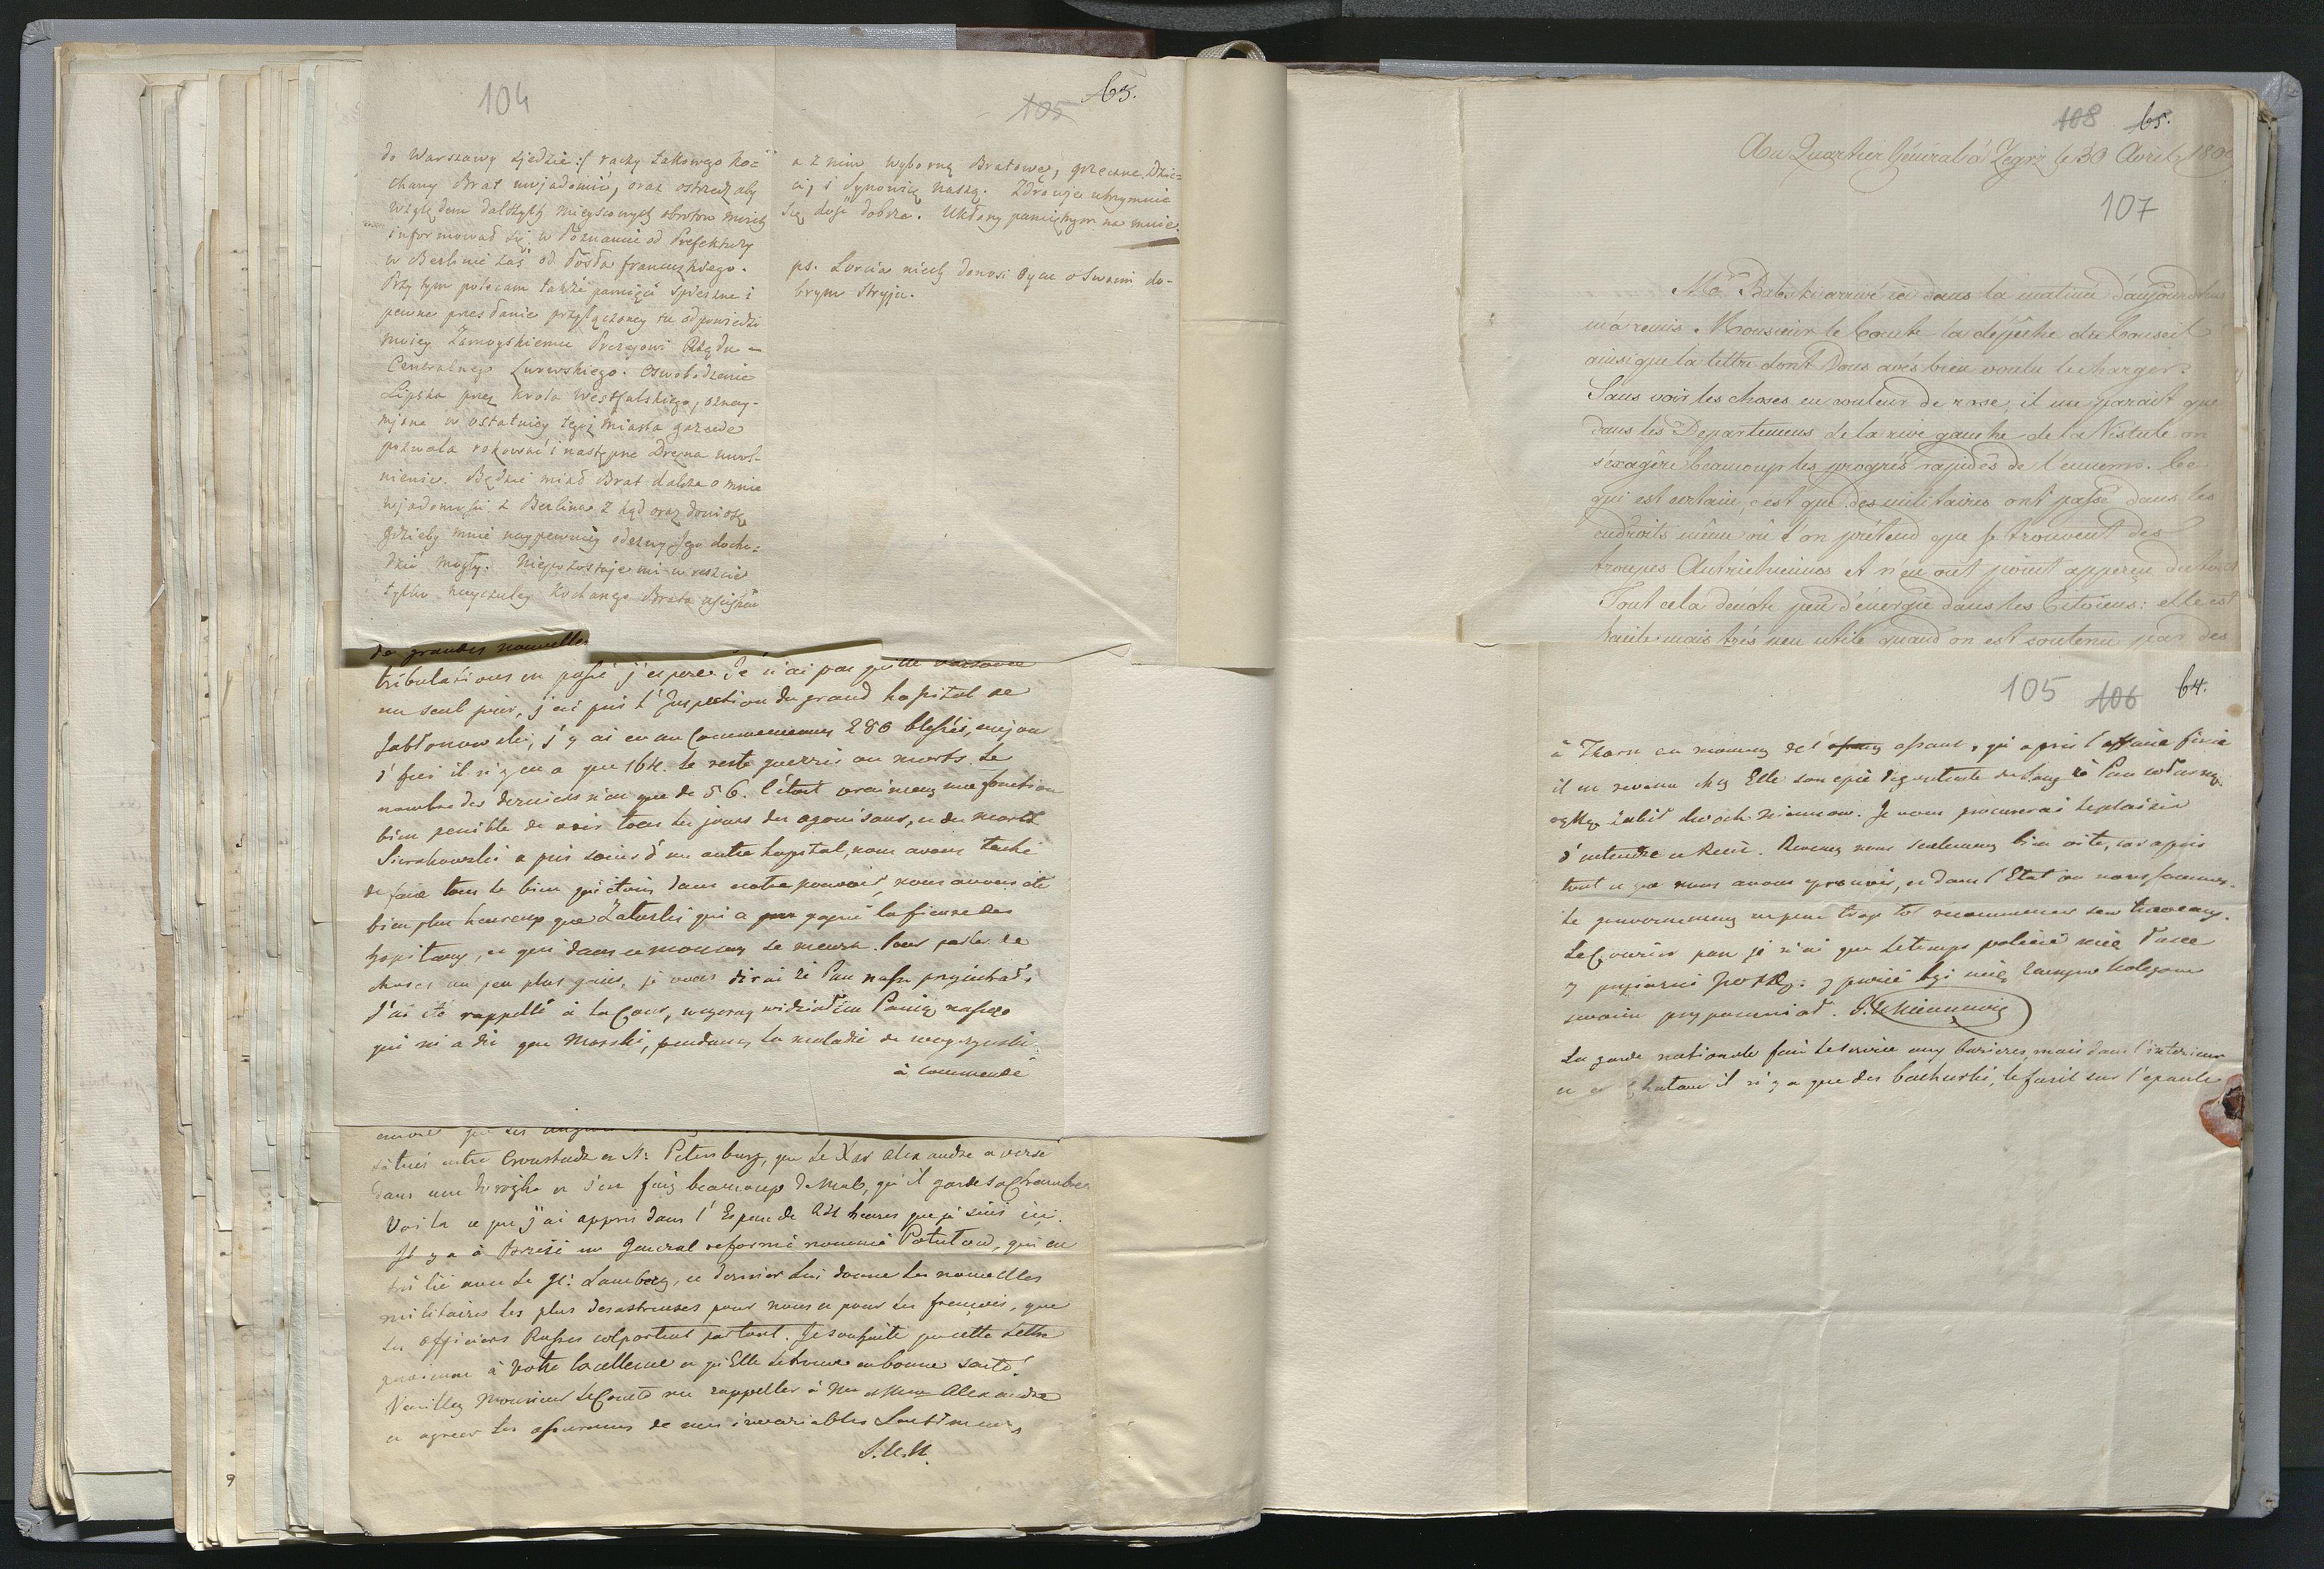 104
105 63.
do Warszawy zjedzie :/ raczy takowego ko=
chany Brat uwjadomić, oraz ostrzedz aby
względem dalszych mieyscowych obrotow moich
informował się w Poznaniu od Prefektury
w Berlinie zaś od Posła francuzkiego.
Przy tym polecam także pamięci spieszne i
pewne przesłanie przyłączoney tu odpowiedzi
moiey Zamoyskiemu Prezesowi Rządu
Centralnego Lwowskiego. Oswobodzenie
Lipska przez Krola Westfalskiego, oznay-
mjone w ostatniey tegoż miasta gazecie
pozwala rokować i następne Drezna uwol-
nienie. Będzie miał Brat dalsze o mnie
wjadomości z Berlina, z kąd oraz doniosę
gdzieby mnie naypewniey odezwy Jego docho=
dzić mogły. Niepozostaje mi w reszcie
tylko nayczuley Kochanego Brata uściskać
a z nim wyborną Bratowę, grzeczne Dzie=
ci, i Synowicę naszą. Zdrowje utrzymuie
się dość dobrze. Ukłony pamiętnym na mnie.
ps. Lorcia niech donosi Oycu o Swoim do-
brym Stryju.
de grandes nouvelles
tribulations en passé j'espere. Je n'ai pas quitté Varsovie
un seul jour, j'ai pris l'Inspection du grand hopital de
Jabłonowski, j'y ai eu au Commencement 280 blessés, aujour
d'hui il n'y en a que 164. le reste guerris ou morts. Le
nombre des derniers n'est que de 56. C'étoit vraiment une fonction
bien penible de voir tous les jours des agonisans, et des morts
Sierakowski a pris soins d'un autre hopital, nous avons taché
de faire tous le bien qui étoit dans notre pouvoir, nous avons été
bien plus heureux que Załuski qui a gagné la fievre des
hopitaux, et qui dans ce moment se meurt. Pour parler de
choses un peu plus gaies, je vous dirai że Pan nasz przyjechał,
J'ai été rappellé à la Cour, wczoray widziałem Panią naszą
qui m'a dit que Morski, pendant la maladie de
à commendé
situés entre Cronstadt et St. Petersburg, que le Xar Alexandre a versé
dans une drożka et s'est fait beaucoup de mal, qu'il garde sa Chambre
Voila ce que j'ai appris dans l'Espace de 24 heures que je suis ici.
Il y a à Brzesć un General reformé nommé Potulow, qui est
très lié avec le Gl. Lamberg, ce dernier lui donne les nouvelles
militaires les plus desastreuses pour nous et pour les français, que
les officiers Russes colportent partout. Je souhaite que cette Lettre
parvienne à Votre Excellence et qu'Elle la trouve en bonne santé.
Veuillez Monsieur le Comte me rappeller à Mr et Mme Alexandre
et agreer les assurances de mes invariables Sentimens
J.U.N.
9
108 65.
Au Quartier Général à Zegrz le 30 Avril 180
107
Mr. Babski arrivé ici dans la matinée d'aujourdhui
m'a remis Monsieur le Comte la dépêche du Conseil
ainsi que la lettre dont Vous avés bien voulu le charger.
Sans voir les choses en couleur de rose, il me parait que
dans les Departemens de la rive gauche de la Vistule on
s'exagère beaucoup les progrés rapides de l'ennemi. Ce
qui est certain, c'est que des militaires ont passé dans les
endroits même où l'on prétend que se trouvent des
troupes Autrichiennes et n'en ont point apperçu du tout
Tout cela denote peu d'énergie dans les Citoiens: elle est
facile mais très peu utile quand on est soutenu par des
105 106 64.
à Thorn au moment de l'assaut, qui après l'affaire finie
il est revenu chez Elle son epée degoutante du sang że Pan
zabił dwoch Niemcow. Je vous procurerai le plaisir
d'entendre ce Recit. Revenez nous seulement bien vite, car après
tout ce que nous avons eprouvé, et dans l'Etat ou nous sommes
le gouvernement ne peut trop tot recommencer ses travaux.
Le Courier part je n'ai que le temps polecić mię Pańce
y przyiazni y prosić byś mię kolegom
swoim przypomniał. J.U. Niemcewicz
La garde nationale fait le service aux barieres, mais dans l'interieur
et au Chateau il n'y a que des bachurki, le fusil sur l'epaule